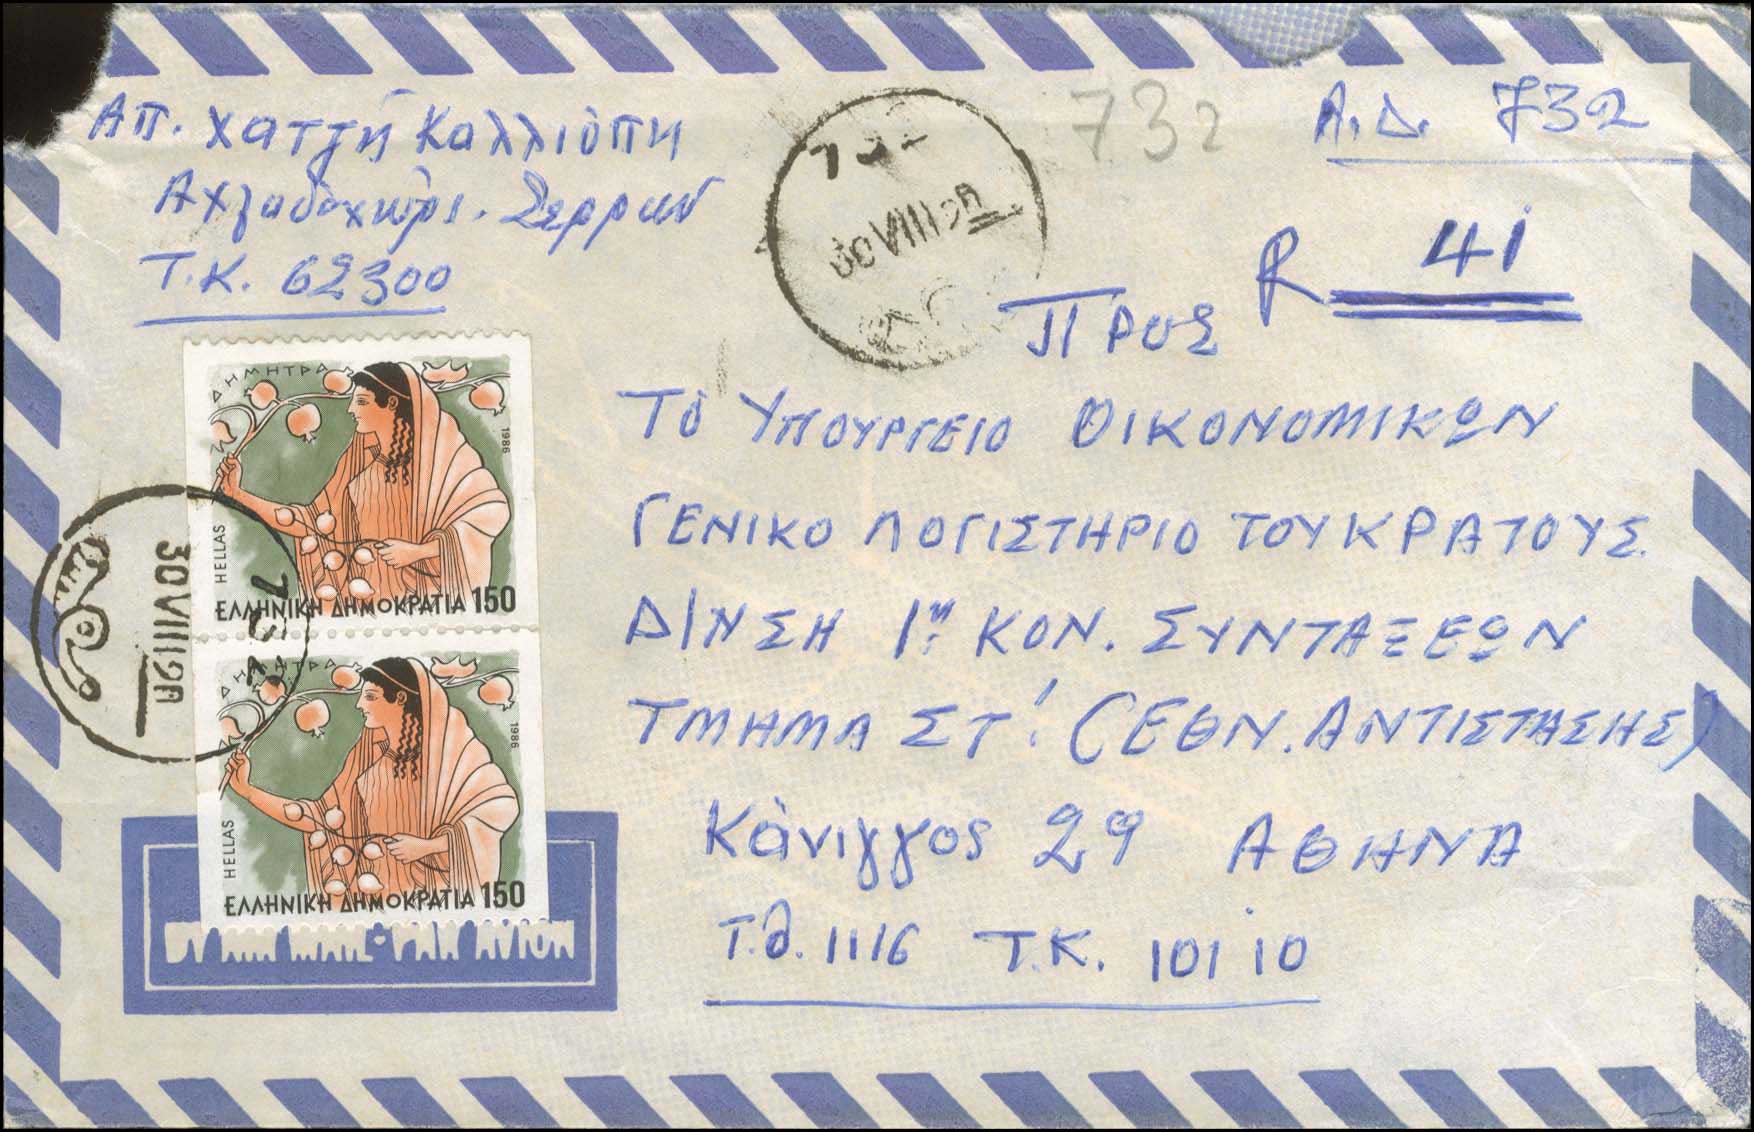 Απ. Χατζή Καλλιόπη
Αχλαδοχώρι. Σερρών
Τ.Κ. 62300
732
Α.Δ. 732
R 41
7
VIII
Προς
Το Υπουργειο Οικονομικων
ΓΕΝΙΚΟ ΛΟΓΙΣΤΗΡΙΟ ΤΟΥ ΚΡΑΤΟΥΣ.
Δ/ΝΣΗ 1η ΚΟΝ. ΣΥΝΤΑΞΕΩΝ
ΤΜΗΜΑ ΣΤ' (ΕΘΝ. ΑΝΤΙΣΤΑΣΗΣ)
Κάνιγγος 29 ΑΘΗΝΑ
Τ.θ. 1116 Τ.Κ. 101 10
ΔΗΜΗΤΡΑ
1986
HELLAS
ΕΛΛΗΝΙΚΗ ΔΗΜΟΚΡΑΤΙΑ 150
732
30 VIII 9A
ΔΗΜΗΤΡΑ
1986
HELLAS
ΕΛΛΗΝΙΚΗ ΔΗΜΟΚΡΑΤΙΑ 150
BY AIR MAIL • PAR AVION